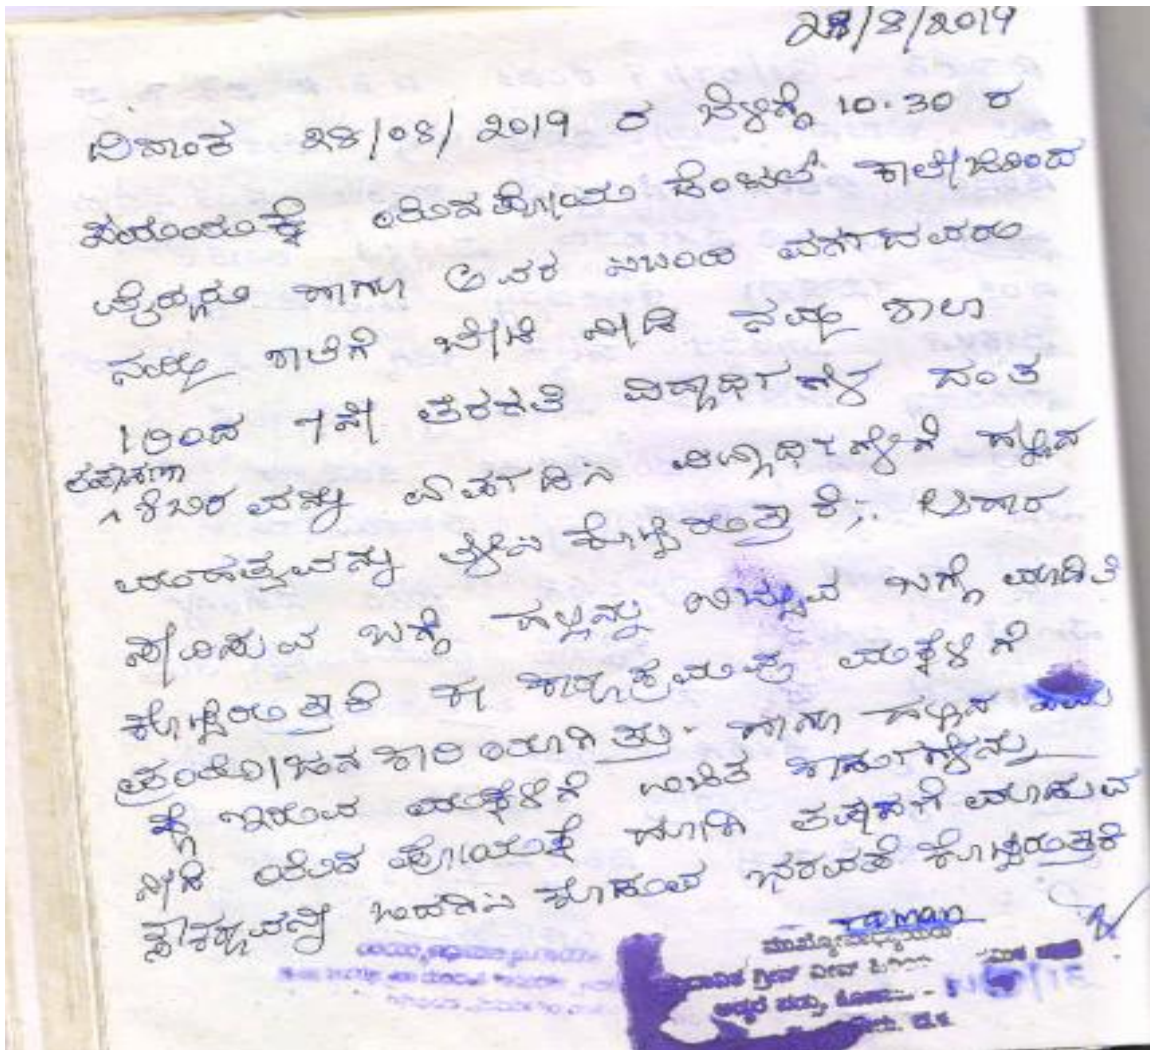 28/8/2019
ದಿನಾಂಕ 28/08/2019 ರ ಬೆಳಿಗ್ಗೆ 10.30 ರ
ಸಮಯಕ್ಕೆ ಯೆನಪೋಯ ಡೆಂಟಲ್ ಕಾಲೇಜಿನಿಂದ
ವೈದ್ಯರು ಹಾಗೂ ಅವರ ಸಿಬಂದಿ ವರ್ಗದವರು
ನಮ್ಮ ಶಾಲೆಗೆ ಬೇಟಿ ನೀಡಿ ನಮ್ಮ ಶಾಲಾ
1ರಿಂದ 7ನೇ ತರಗತಿ ವಿದ್ಯಾರ್ಥಿಗಳಿಗೆ ದಂತ
ತಪಾಸಣಾ
ಶಿಬಿರವನ್ನು ವಿದ್ಯಾರ್ಥಿಗಳಿಗೆ ಹಲ್ಲಿನ
ಮಹತ್ವವನ್ನು ತಿಳಿಸಿ ಕೊಟ್ಟಿರುತ್ತಾರೆ. ಆಹಾರ
ಸೇವಿಸುವ ಬಗ್ಗೆ ಹಲ್ಲನ್ನು ಉಜ್ಜುವ ಬಗ್ಗೆ ಮಾಹಿತಿ
ಕೊಟ್ಟಿರುತ್ತಾರೆ ಈ ಕಾರ್ಯಕ್ರಮವು ಮಕ್ಕಳಿಗೆ
ಪ್ರಯೋಜನಕಾರಿಯಾಗಿತ್ತು. ಹಾಗೂ ಹಲ್ಲಿನ
ಇರುವ ಮಕ್ಕಳಿಗೆ ಉಚಿತ
ಯೆನಪೋಯಕ್ಕೆ ಹೋಗಿ ತಪಾಸಣೆ ಮಾಡುವ
ಸೌಕರ್ಯವನ್ನು ಒದಗಿಸಿ ಕೊಡುವ ಭರವಸೆ ಕೊಟ್ಟಿರುತ್ತಾರೆ
ಮುಖ್ಯೋಪಾಧ್ಯಾಯರು
ಗ್ರೀನ್ ವೀವ್